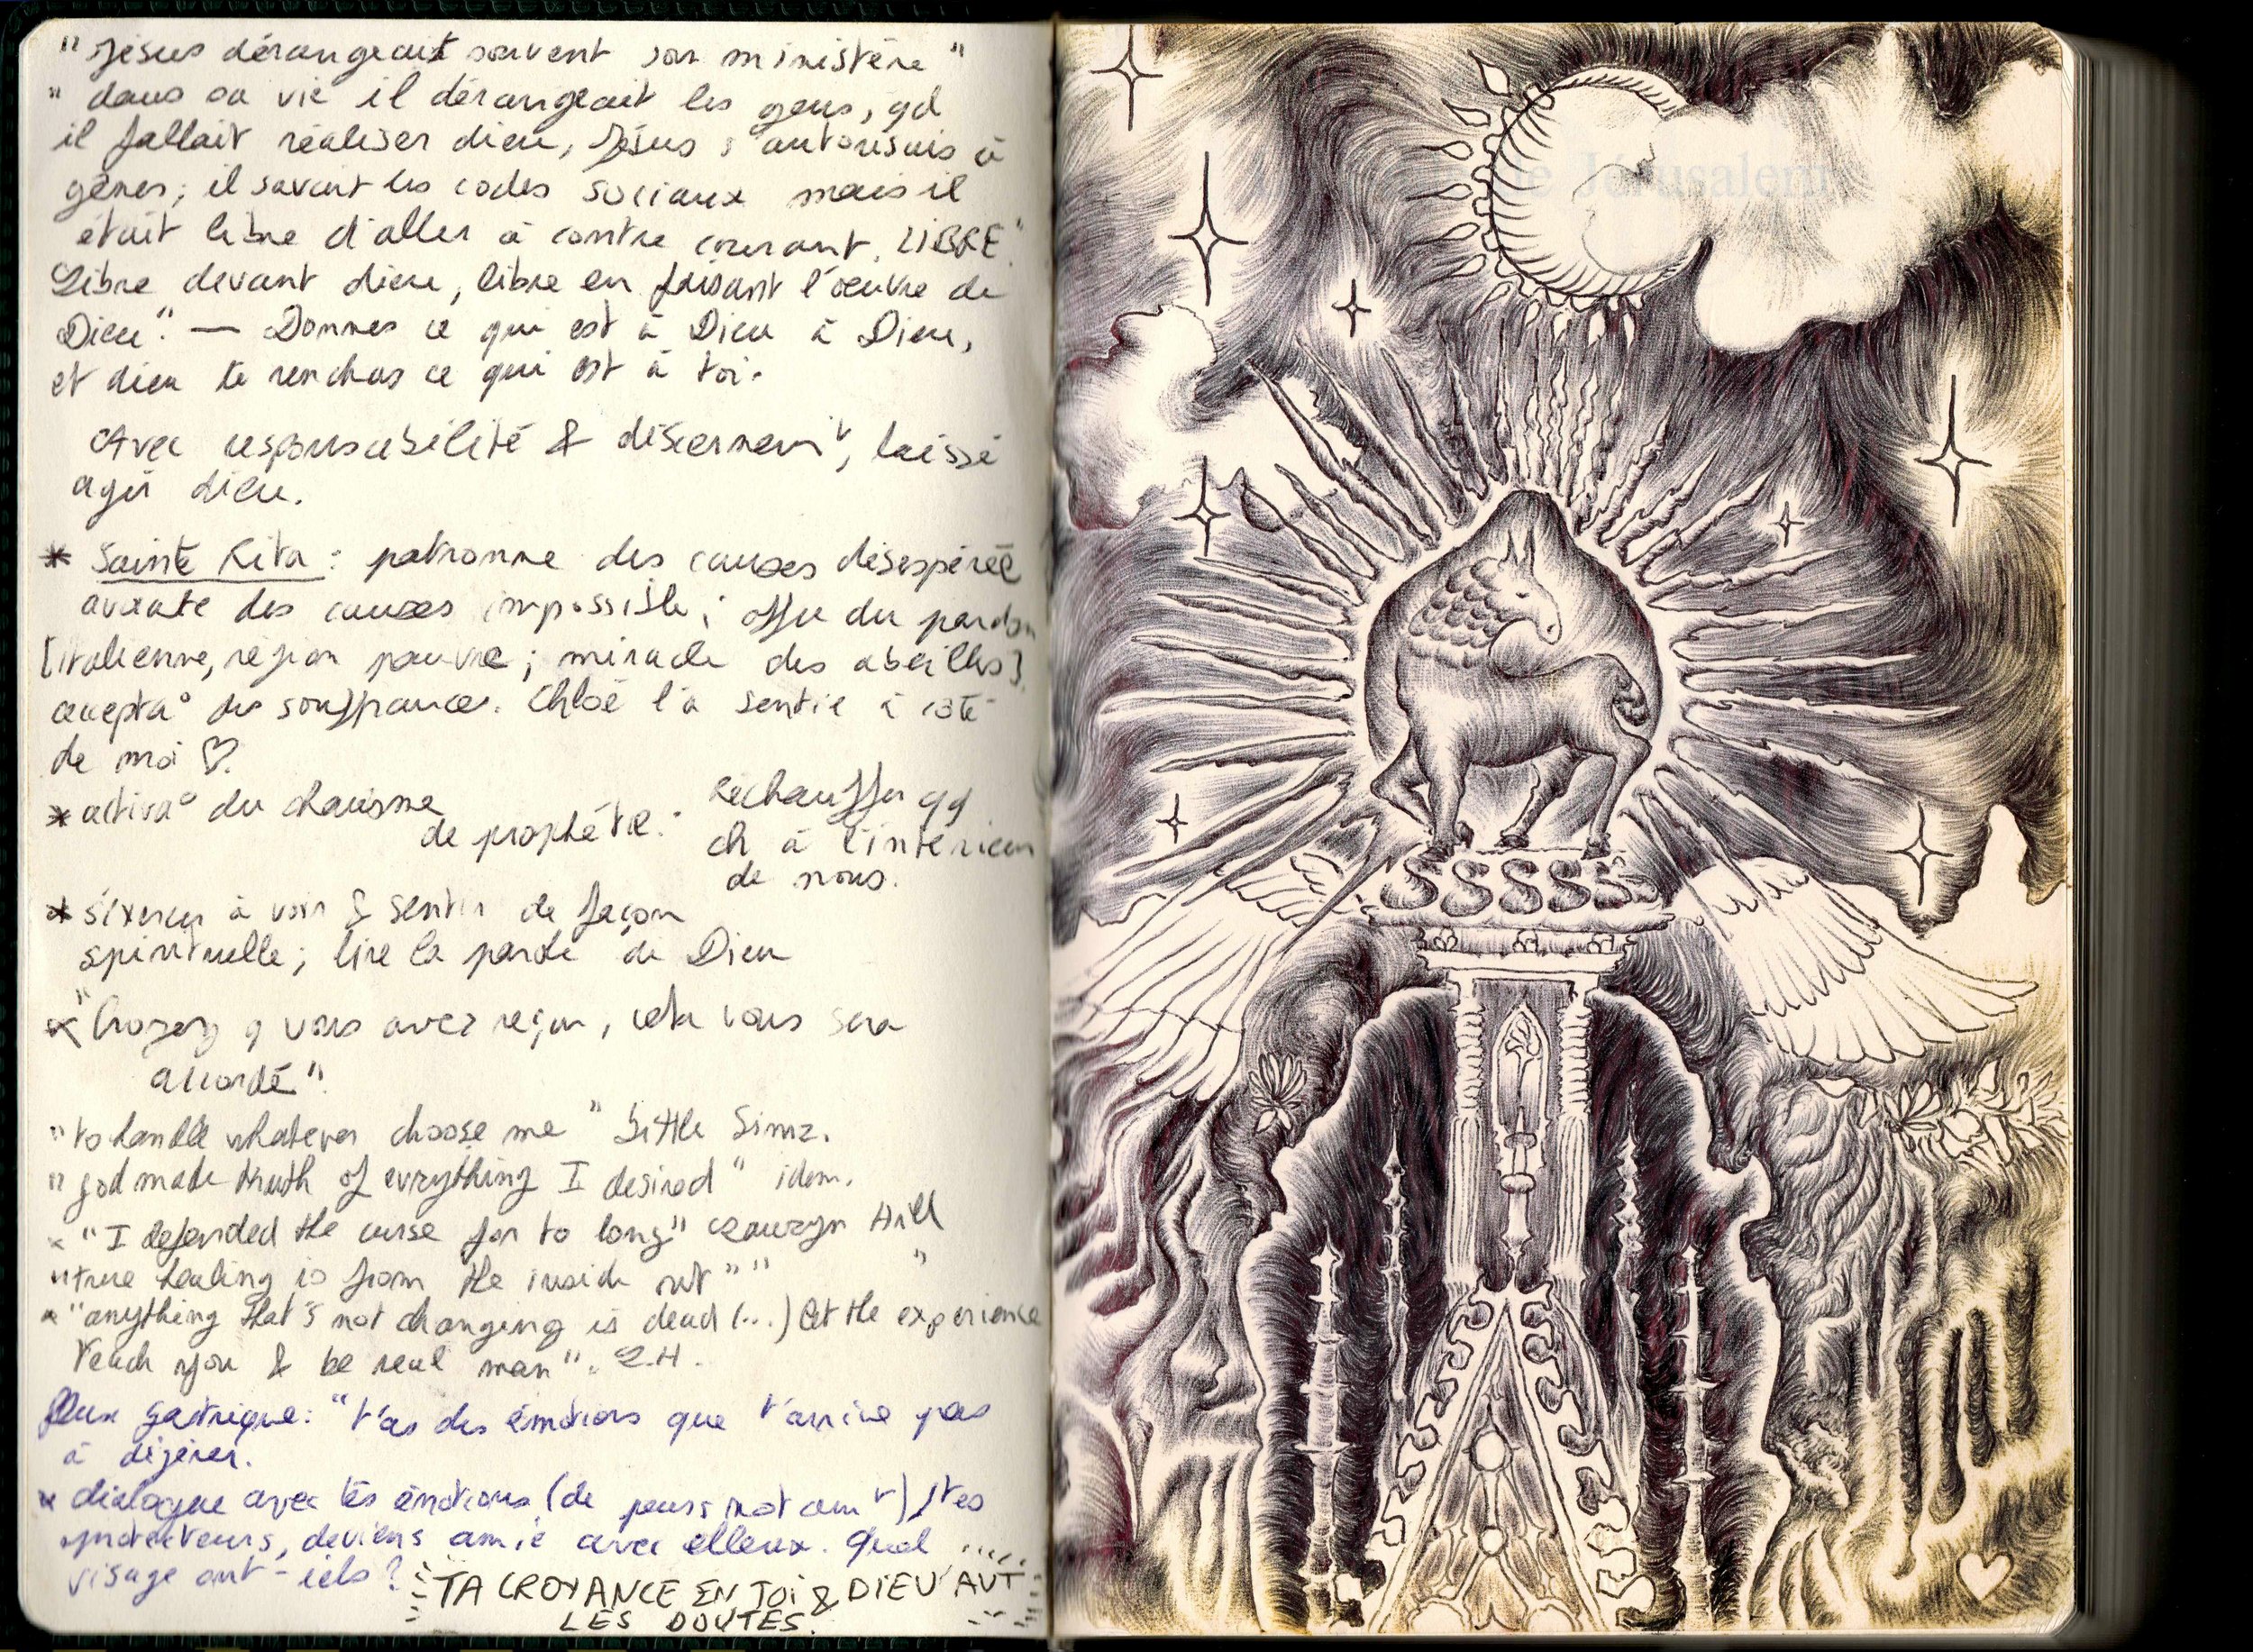 "Jésus dérangeait souvent son ministère"
"dans sa vie il dérangeait les gens, qd
il fallait réaliser dieu, Jésus s'autorisais à
gêner; il savait les codes sociaux mais il
était libre d'aller à contre courant. LIBRE."
"Libre devant dieu, libre en faisant l'oeuvre de
Dieu". — Donnes ce qui est à Dieu à Dieu,
et dieu te rendras ce qui est à toi.
Avec responsabilité & discernemt, laissé
agir dieu.
* Sainte Rita : patronne des causes désespérée
avocate des causes impossible; du pardon
[italienne, région pauvre; miracle des abeilles]
accepta° de souffrance. Chloé l'a sentie à côté
de moi ♡.
* activa° du charisme
de prophétie : Réchauffer qq
ch à l'intérieur
de nous.
* s'exercer à voir & sentir de façon
spirituelle; lire la parole de Dieu
* "Croyez q vous avez reçu, cela vous sera
accordé".
"to handle whatever choose me" Little Simz.
"god made truth of evrything I desired" idem.
* "I defended the curse for to long" Lauryn Hill
"true healing is from the inside out" " "
* "anything that's not changing is dead (...) let the experience
teach you & be real man". L.H.
Flux gastrique: "t'as des émotions que t'arrive pas
à digérer.
* dialogue avec tes émotions (de peurs notamt) / tes
protecteurs, deviens amie avec elleux. Quel
visage ont-iels?
TA CROYANCE EN TOI & DIEU AVT
LES DOUTES.
de Jérusalem